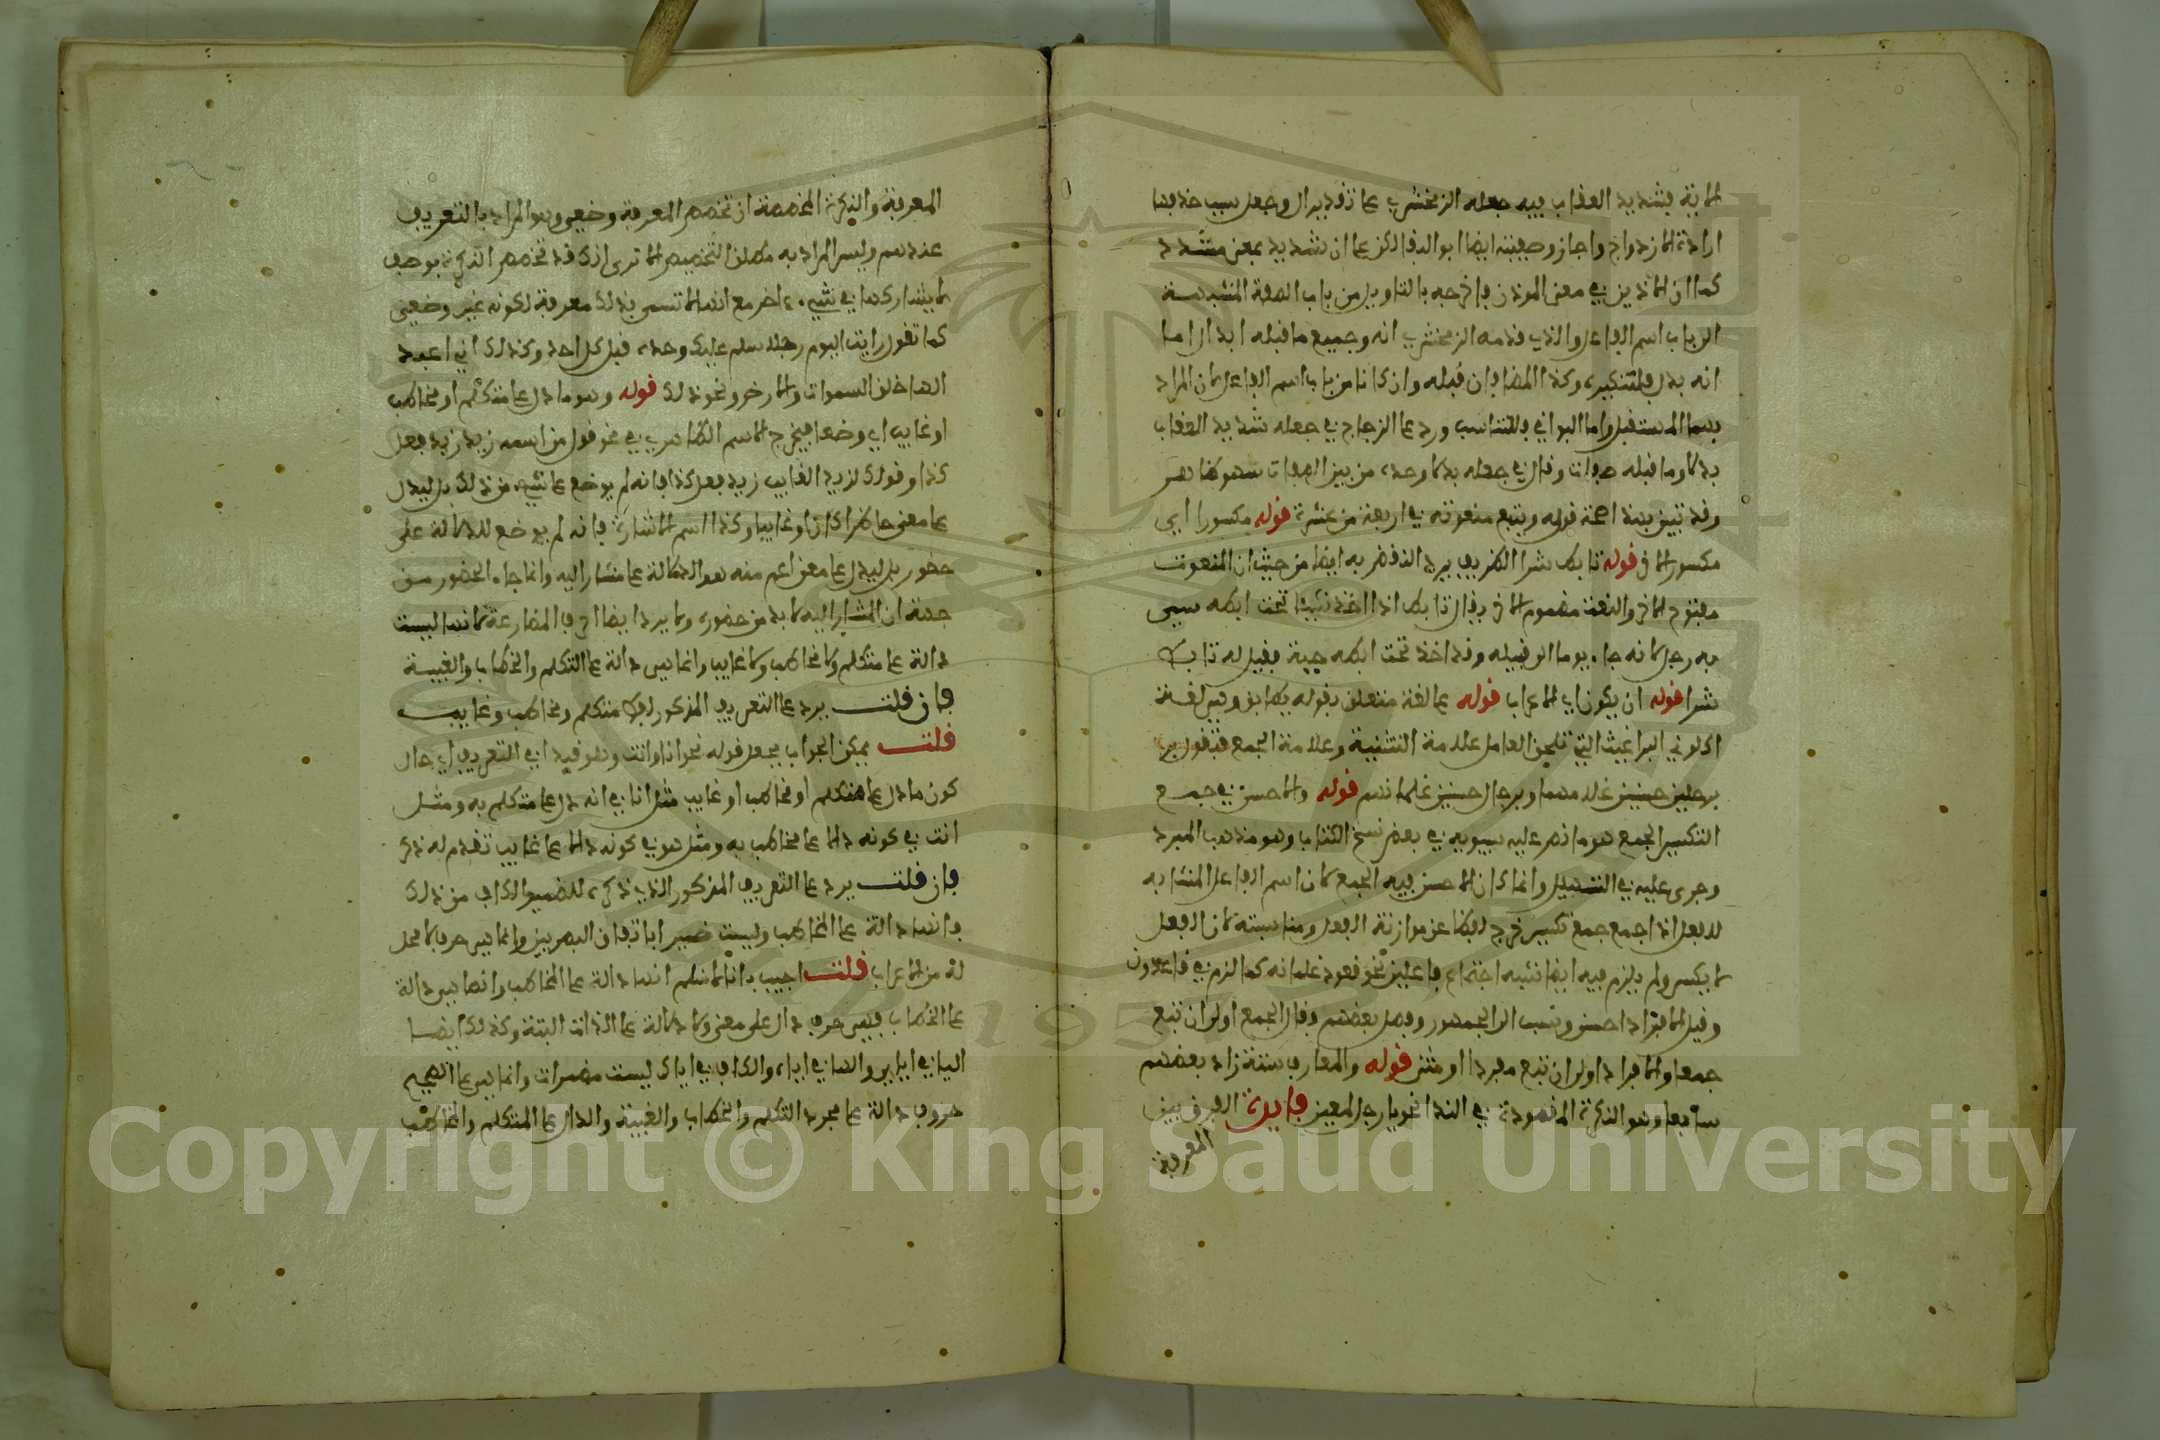 لابة بشديد العقاب فيه جعله الزمخشري على تقدير ال وجعل سبب حذفها
ارادة الازدواج واجاز وصفيته ايضا ابو البقا لاكن على ان شديد بمعنى مشدد
كما ان الاذين في معنى الموذن فاخرجه بالتاويل من باب الصفة المشبهة
الى باب اسم الفاعل والذي قدمه الزمخشري انه وجميع ما قبله ابدال اما
انه بدل فلتنكيره وكذا المضافان قبله وان كانا من باب اسم الفاعل لان المراد
بهما المستقبل واما البواقي فللتناسب ورد على الزجاج في جعله شديد العقاب
بدلا وما قبله صفات وقال في جعله بدلا وحده من بين الصفات نبو ظاهر
وقد تبين بهذا صحة قوله ويتبع منعوته في اربعة من عشرة قوله مكسورا اي
مكسور الاخر قوله تابط شرا الظريف يرد النقض به ايضا من حيث ان المنعوت
مفتوح الاخر والنعت مضموم الاخر يقال تابط اذا اخذ شيئا تحت ابطه سمي
به رجل لانه جاء يوما الى قبيله وقد اخذ تحت ابطه حية فقيل له تابط
شرا قوله ان يكون اي الاعراب قوله على لغة متعلق بقوله يطابق وهي لغة
اكلوني البراغيث التي تلحق العامل علامة التثنية وعلامة الجمع فتقول
برجلين حسنين غلامهما وبرجال حسنين غلمانهم قوله والاحسن في جمع
التكسير الجمع هو ما نص عليه سيبويه في بعض نسخ الكتاب وهو مذهب المبرد
وجرى عليه في التسهيل وانما كان الاحسن فيه الجمع لان اسم الفاعل المشابه
للفعل اذا جمع جمع تكسير خرج لفظا عن موازنة الفعل ومناسبته لان الفعل
لا يكسر ولم يلزم فيه ايضا شبه اجتماع فاعلين نحو قعود غلمانه كما لزم في قاعدون
وقيل الافراد احسن ونسب الى الجمهور وفصل بعضهم فقال الجمع اولى ان تبع
جمعا والافراد اولى ان تبع مفردا او مثنى قوله والمعارف ستة زاد بعضهم
سابعا وهو النكرة المقصودة في الندا نحو يا رجل لمعين فايدة الفرق بين
المعرفة
المعرفة والنكرة المخصصة ان تخصص المعرفة وضعي وهو المراد بالتعريف
عندهم وليس المراد به مطلق التخصيص الا ترى انك قد تخصص النكرة بوصف
لا يشاركها في شيء اخر مع انها لا تسمى بذلك معرفة لكونه غير وضعي
كما تقول رايت اليوم رجلا سلم عليك وحده قبل كل احد وكذلك اني اعبد
الها خلق السموات والارض ونحو ذلك قوله وهو ما دل على متكلم او مخاطب
او غايب اي وضعا فيخرج الاسم الظاهر في نحو قول من اسمه زيد زيد فعل
كذا وقولك لزيد الغايب زيد فعل كذا فانه لم يوضع على شيء من ذلك بل ليدل
على معنى حاضرا كان او غايبا وكذا اسم الاشارة فانه لم يوضع للدلالة على
حضور بل ليدل على معنى اعم منه هو الدلالة على مشار اليه وانما جاء الحضور من
جهة ان المشار اليه لا بد من حضوره ولا يرد ايضا احرف المضارعة لانها ليست
دالة على متكلم ولا مخاطب ولا غايب وانما هي دالة على التكلم والخطاب والغيبة
فان قلت يرد على التعريف المذكور لفظ متكلم ومخاطب وغايب
قلت يمكن الجواب بجعل قوله نحو انا وانت وهو قيدا في التعريف اي حال
كون ما دل على متكلم او مخاطب او غايب مثل انا في انه دل على متكلم به ومثل
انت في كونه دالا على مخاطب به ومثل هو في كونه دالا على غايب تقدم له ذكر
فان قلت يرد على التعريف المذكور الذي ذكره للضمير الكاف من ذلك
فانها دالة على المخاطب وليست ضميرا باتفاق البصريين وانما هي حرف لا محل
له من الاعراب قلت اجيب بانا لا نسلم انها دالة على المخاطب وانما هي دالة
على الخطاب فهي حرف دال على معنى ولا دلالة على الذات البتة وكذلك ايضا
اليا في اياي والها في اياه والكاف في اياك ليست مضمرات وانما هي على الصحيح
حروف دالة على مجرد التكلم والخطاب والغيبة والدال على المتكلم والمخاطب
Copyright © King Saud University
1957